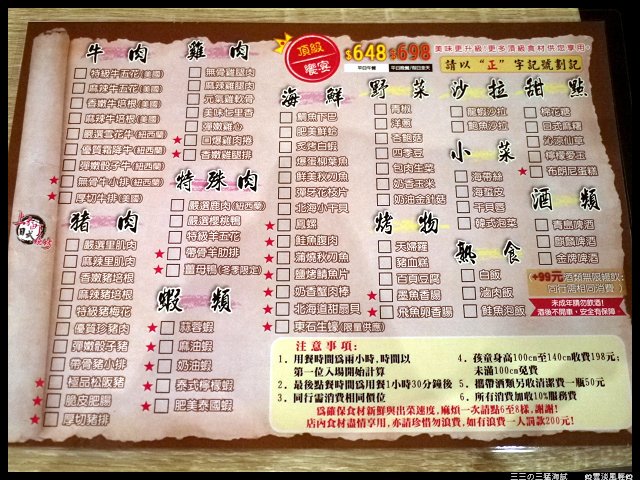 頂級
饗宴
$648
$698
平日午餐
美味更升級!更多頂級食材供您享用。
請以 "正" 字記號劃記
牛肉
特級牛五花(美國)
麻辣牛五花(美國)
香嫩牛培根(美國)
麻辣牛培根(美國)
嚴選雪花牛(紐西蘭)
優質霜降牛(紐西蘭)
彈嫩骰子牛(紐西蘭)
★無骨牛小排(紐西蘭)
★厚切牛排(美國)
豬肉
嚴選里肌肉
麻辣里肌肉
香嫩豬培根
麻辣豬培根
特級豬梅花
優質珍豬肉
彈嫩骰子豬
帶骨豬小排
★極品松阪豬
★脆皮肥腸
★厚切豬排
雞肉
無骨雞腿肉
麻辣雞腿肉
元氣雞軟骨
美味七里香
彈嫩雞心
★回爆雞肉捲
★香嫩雞腿排
特殊肉
嚴選鹿肉(紐西蘭)
嚴選櫻桃鴨
特級羊五花
★帶骨羊肋排
★薑母鴨(冬季限定)
蝦類
★蒜蓉蝦
麻油蝦
★奶油蝦
★泰式檸檬蝦
★肥美泰國蝦
海鮮
鯛魚下巴
肥美鮮蛤
炙烤白蝦
爆蛋柳葉魚
鮮美秋刀魚
彈牙花枝片
北海小干貝
★鳳螺
★鮭魚腹肉
★蒲燒秋刀魚
★鹽烤鯖魚片
★奶香蟹肉棒
★北海道甜扇貝
★東石生蠔(限量供應)
野菜
青椒
洋蔥
杏鮑菇
四季豆
包肉生菜
奶香玉米
奶油金針菇
烤物
天婦羅
豬血糕
百頁豆腐
★墨魚香腸
★飛魚卵香腸
沙拉
龍蝦沙拉
鮑魚沙拉
小菜
海帶絲
海蜇皮
干貝唇
韓式泡菜
熟食
白飯
滷肉飯
鮭魚泡飯
甜點
棉花糖
日式麻糬
沁涼仙草
檸檬愛玉
★布朗尼蛋糕
酒類
青島啤酒
麒麟啤酒
金牌啤酒
+99元酒類無限暢飲
(同行需相同消費)
未成年請勿飲酒!
酒後不開車,安全有保障
注意事項:
1. 用餐時間為兩小時,時間以
第一位入場開始計算
2. 最後點餐時間為用餐1小時30分鐘後
3. 同行需消費相同價位
4. 孩童身高100cm至140cm收費198元;
未滿100cm免費
5. 攜帶酒類另收清潔費一瓶50元
6. 所有消費加收10%服務費
為確保食材新鮮與出菜速度,麻煩一次請點6至8樣,謝謝!
店內食材盡情享用,亦請珍惜勿浪費,如有浪費一人罰款200元!
三三の三猛海賊